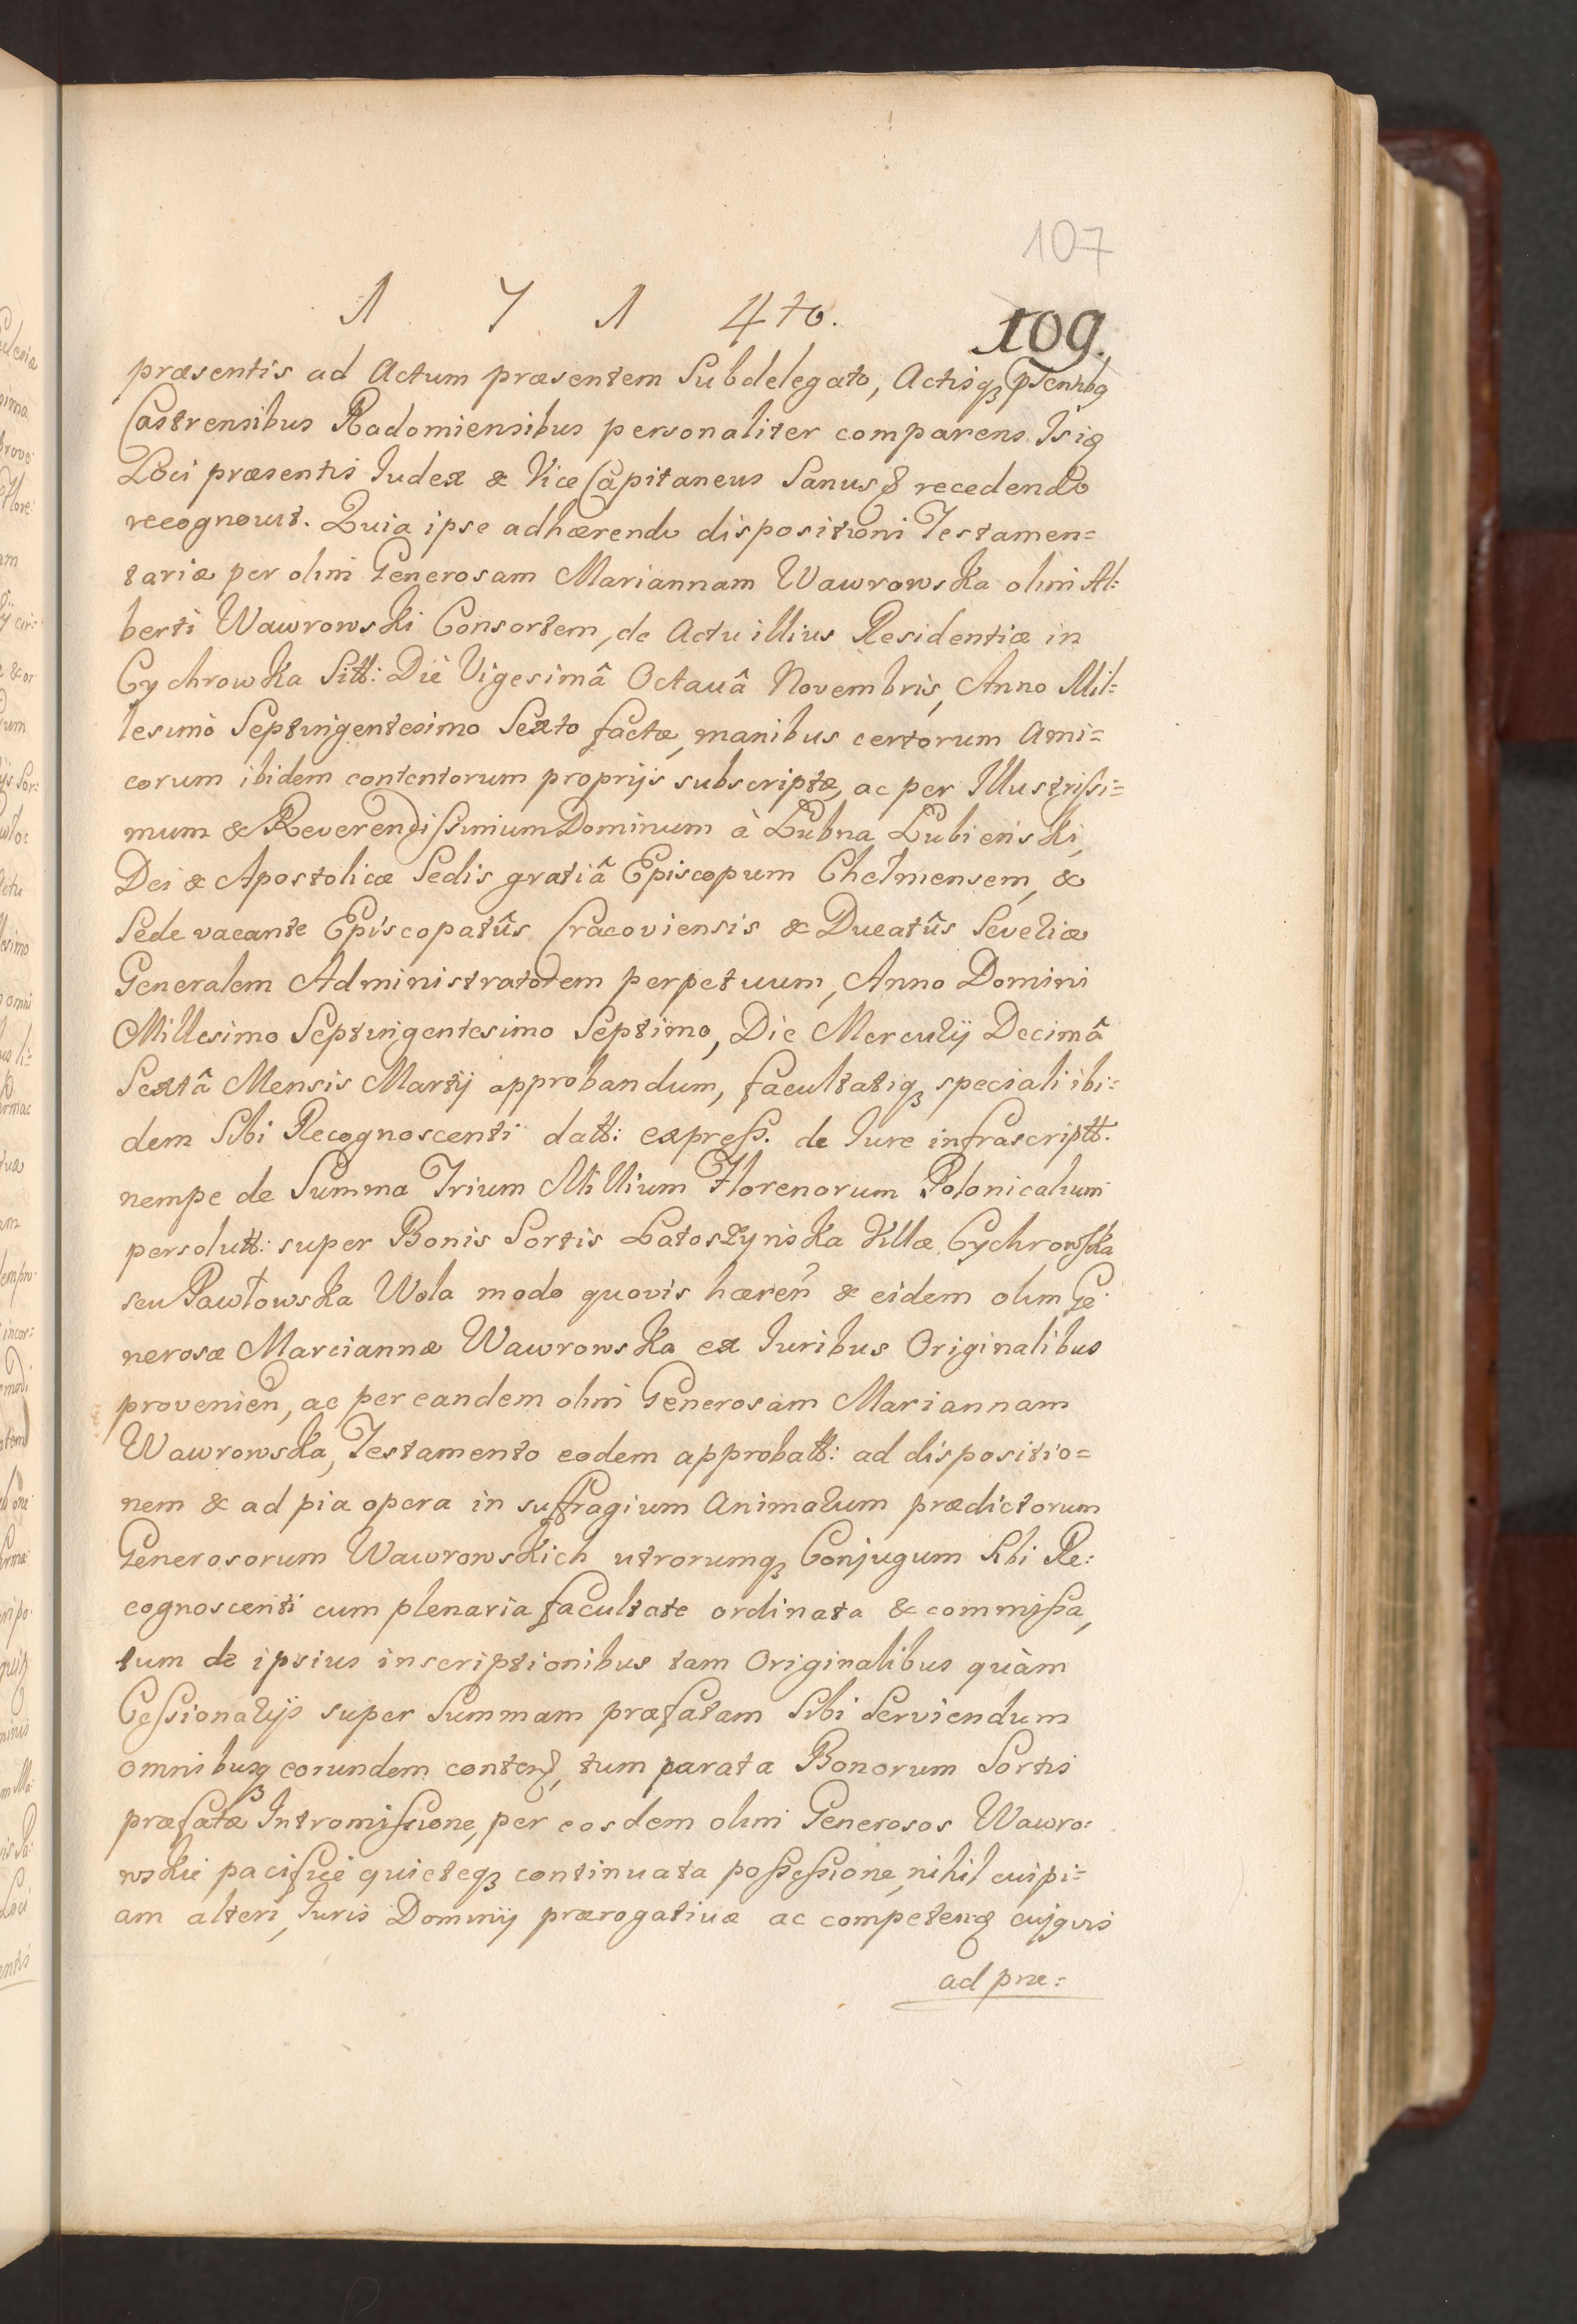 107
1 7 1 4to.
109.
præsentis ad Actum præsentem Subdelegato, Actisqꝫ
Castrensibus Radomiensibus personaliter comparens
Loci præsentis Iudex & Vice Capitaneus Sanus & recedendo
recognovit. Quia ipse adhærendo dispositioni Testamen=
tariæ per olim Generosam Mariannam Wawrowska olim Al=
berti Wawrowski Consortem, de Actu illius Residentiæ in
Cychrowka Sitt: Die Vigesimâ Octauâ Novembris, Anno Mil=
lesimo Septingentesimo Sexto factæ, manibus certorum Ami=
corum ibidem contentorum proprijs subscriptæ, ac per Illustrissi=
mum & Reverendissimum Dominum à Lubna Lubienski,
Dei & Apostolicæ Sedis gratiâ Episcopum Chelmensem, &
Sede vacante Episcopatûs Cracoviensis & Ducatûs Severiæ
Generalem Administratorem perpetuum, Anno Domini
Millesimo Septingentesimo Septimo, Die Mercurij Decimâ
Sextâ Mensis Martij approbandum, facultatiqꝫ speciali ibi=
dem Sibi Recognoscenti datt: express. de Iure infrascriptt.
nempe de Summa Trium Millium Florenorum Polonicalium
persolutt: super Bonis Sortis Latoszynska Villæ Cychrowska
seu Pawłowska Wola modo quovis hæren̄ & eidem olim Ge
nerosæ Marciannæ Wawrowska ex Iuribus Originalibus
provenien̄, ac per eandem olim Generosam Mariannam
Wawrowska, Testamento eodem approbatt: ad dispositio=
nem & ad pia opera in suffragium Animarum prædictorum
Generosorum Wawrowskich utrorumqꝫ Conjugum Sibi Re:
cognoscenti cum plenaria facultate ordinata & commissa,
tum de ipsius inscriptionibus tam Originalibus quàm
Cessionarijs super Summam præfatam Sibi Serviendum
omnibusqꝫ eorundem conten̄, tum parata Bonorum Sortis
præfatæ Intromissione, per eosdem olim Generosos Wawro:
wskie pacificè quieteqꝫ continuata possessione, nihil cuipi=
am alteri, Iuris Dominij prærogativæ ac competen̄ cujqvis
ad præ: